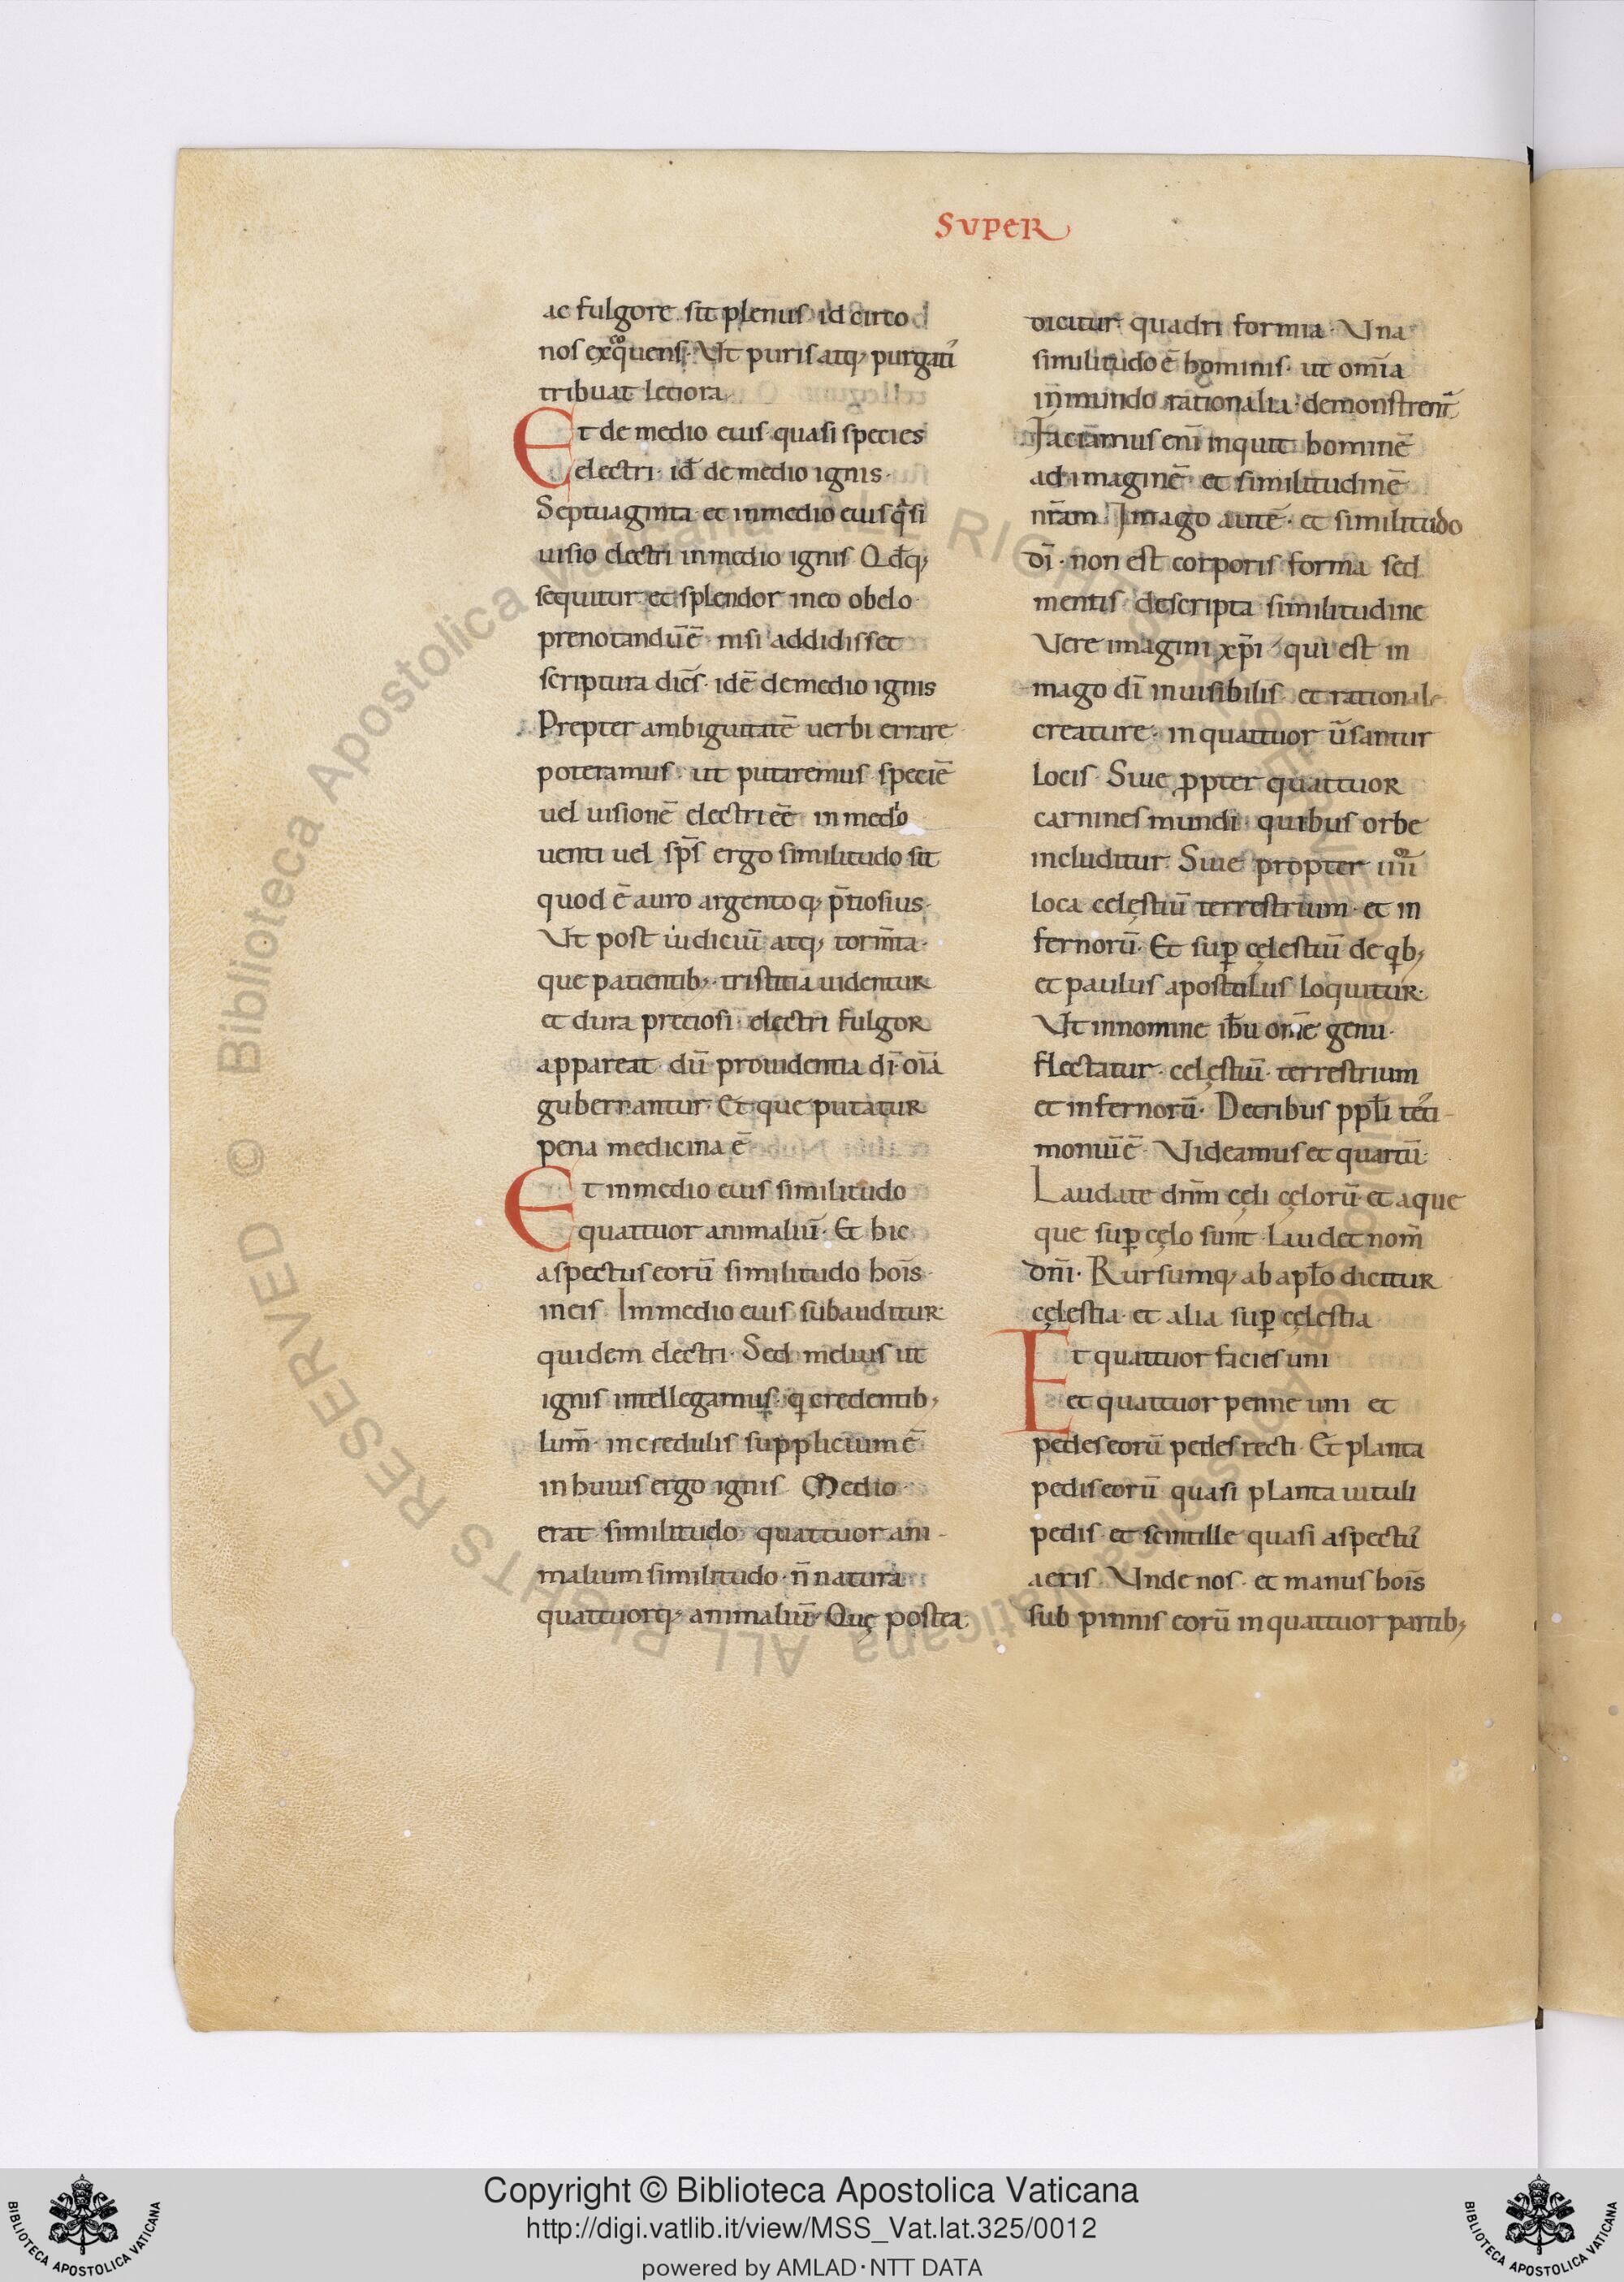 SUPER
ac fulgore sit plenus id circo
nos exq̊quens· Ut puris atq; purgati᷑
tribuat letiora
Et de medio eius quasi species
electri· id̄ de medio ignis·
Septuaginta· et inmedio eius qͣsi
uisio electri inmedio ignis Qd̄q;
sequitur et splendor ineo obelo·
prenotandū ē· nisi addidisset
scriptura diēs· idē demedio ignis
Prepter ambiguitatē uerbi errare
poteramus· ut putaremus speciē
uel uisionē electri eē inmedio
uenti uel sp̄s ergo similitudo sit
quod ē auro argentoq; p̄tiosius·
Ut post iudiciū atq; torm̄ta·
que patientib;· tristitia uidentur
et dura preciosi electri fulgor
appareat· dū prouidentia dī oīa
gubernantur· Et que putatur
pena medicina ē
Et inmedio eius similitudo
quattuor animaliū· Et hic
aspectus eorū similitudo hoīs·
ineis Inmedio eius subauditur·
quidem electri· Sed melius ut
ignis intellegamus· q credentib;
lum̄ incredulis supplicium ē
in huius ergo ignis Medio·
erat similitudo quattuor ani-
malium similitudo· n̄ natura
quattuorq; animaliū· Quę postea
dicitur quadri formia· Una
similitudo ē hominis· ut omīa
inmundo rationalia demonstrent᷑
Faciamus enī inquit hominē
ad imaginē et similitudinē
nr̄am Imago autē· et similitudo
dī· non est corporis forma sed
mentis descripta similitudine
Vere imagini xp̄i qui est in
mago dī inuisibilis et rational
creature· inquattuor ūsantur
locis· Siue ꝓpter quattuor
carnines mundi· quibus orbe
includitur Siue propter iiiiᵒʳ
loca celęstiū terrestrium· et in
fernorū· Et suꝑ cęlestiū de qb;
et paulus apostolus loquitur·
Ut innomine ih̄u om̄e genu·
flectatur· celęstiū· terrestrium
et infernorū· Detribus ppł̄i testi-
moniū ē· Videamus et quartū·
Laudate dn̄m cęli cęlorū· et aque
que suꝑ cęlo sunt Laudet nom̄
dn̄i· Rursumq; ab apl̄o dicitur
cęlestia· et alia suꝑ cęlestia
Et quattuor facies uni
et quattuor penne uni et
pedes eorū pedes recti· Et planta
pedis eorū quasi planta uituli
pedis· et scintille quasi aspectus
aeris Unde nos· et manus hoīs
sub pinnis eorū inquattuor partib;
Copyright © Biblioteca Apostolica Vaticana
http://digi.vatlib.it/view/MSS_Vat.lat.325/0012
powered by AMLAD·NTT DATA
BIBLIOTECA APOSTOLICA VATICANA
BIBLIOTECA APOSTOLICA VATICANA